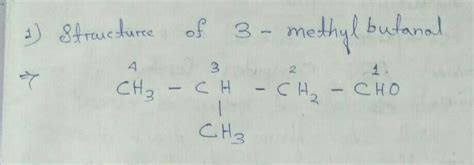 1) Structure of 3 - methyl butanal
⇒ 4 3 2 1
CH₃ - CH - CH₂ - CHO
|
CH₃